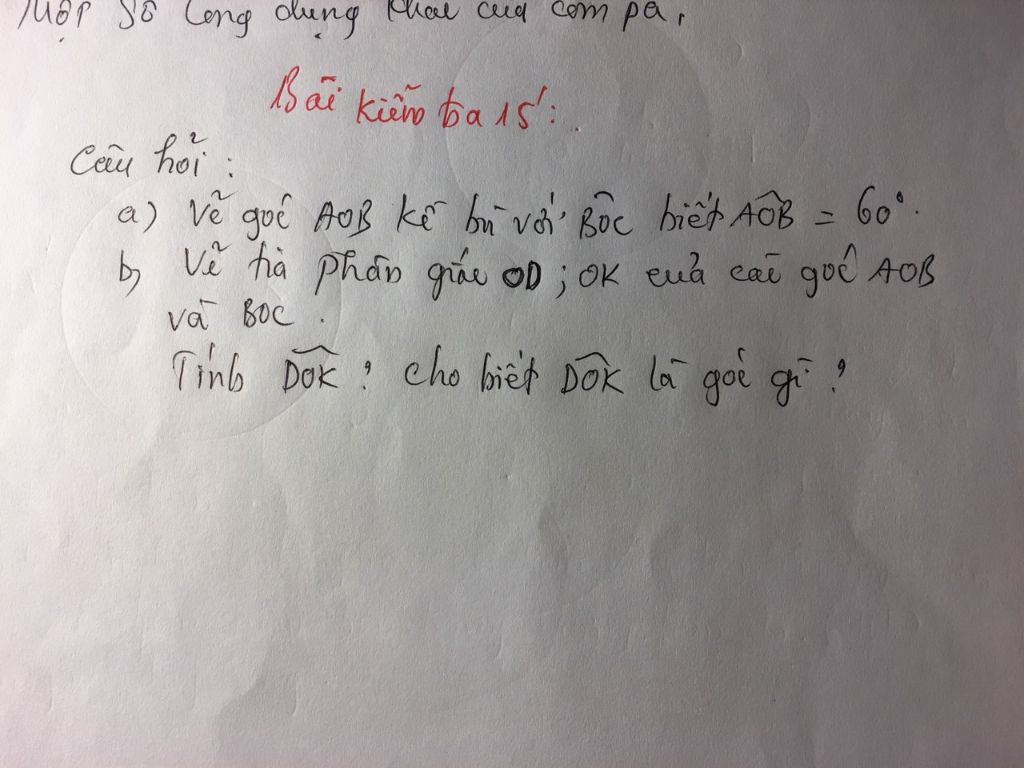 Một số công dụng khác của com pa,
Bài kiểm tra 15':
Câu hỏi:
a) Vẽ góc AOB kề bù với BÔC biết AÔB = 60°.
b) Vẽ tia phân giác OD; OK của các góc AOB
và BOC.
Tính DÔK? Cho biết DÔK là góc gì?